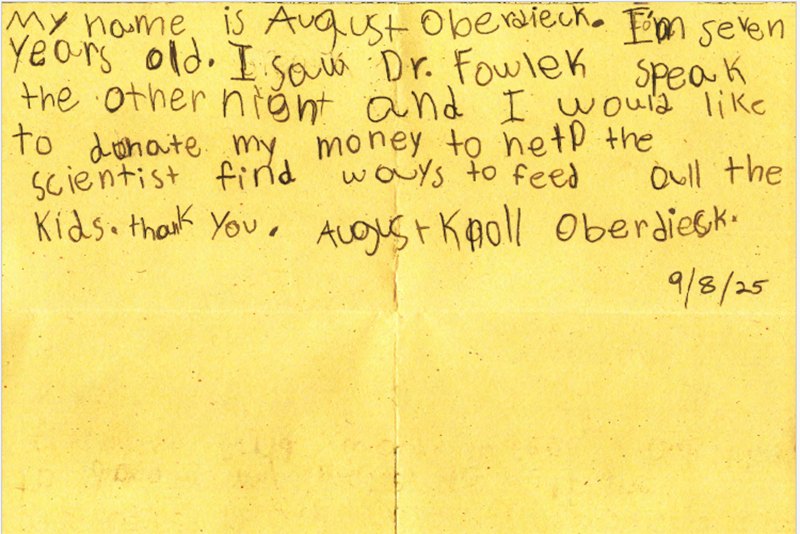 My name is August Oberdieck. I'm seven
years old. I saw Dr. Fowlek speak
the other night and I would like
to donate my money to help the
scientist find ways to feed all the
Kids. thank you. August Knoll Oberdieck.
9/8/25